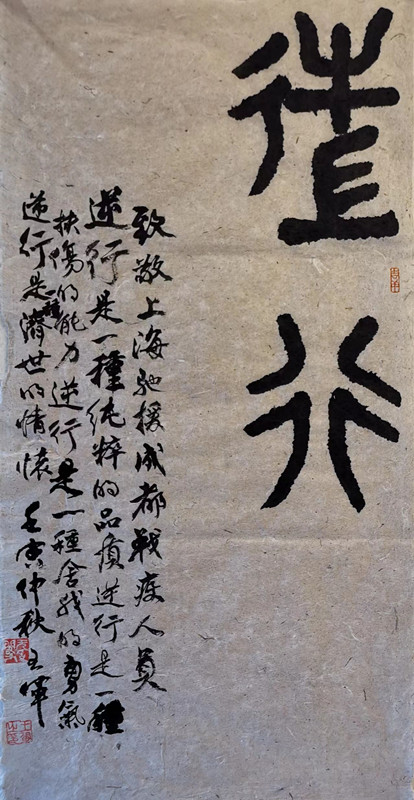 逆行
致敬上海馳援成都戰疫人員
逆行是一種純粹的品質逆行是一種
扶傷的能力逆行是一種舍我的勇氣
逆行是一種濟世的情懷 壬寅仲秋 王軍